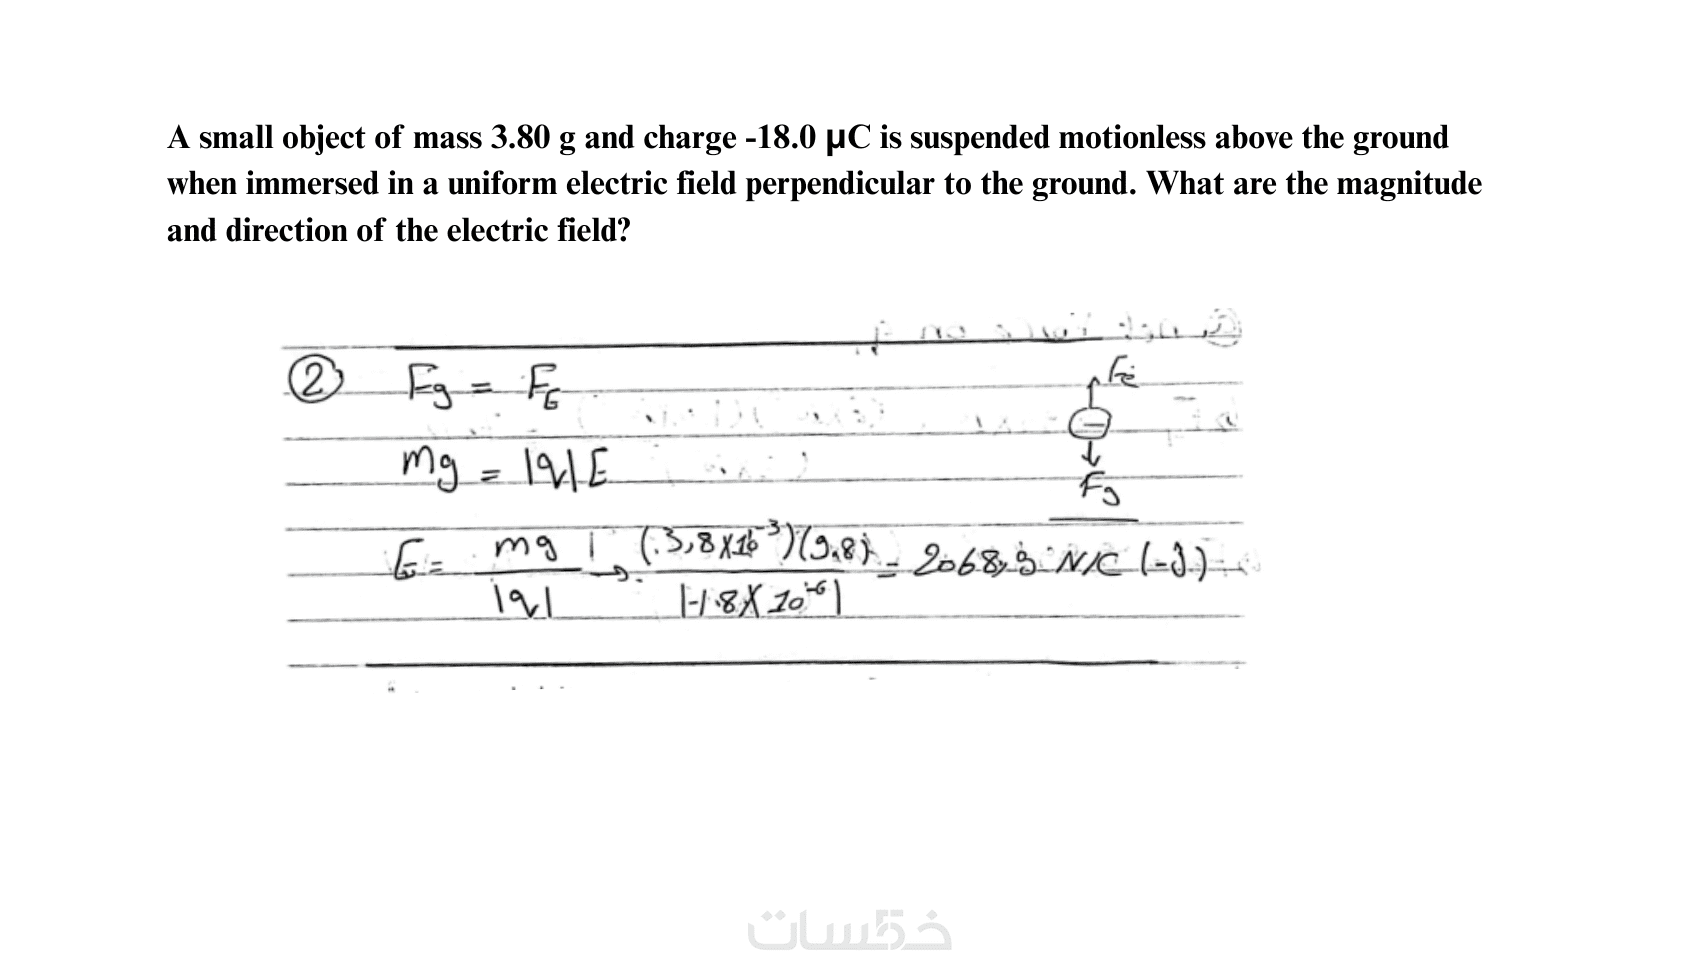 A small object of mass 3.80 g and charge -18.0 μC is suspended motionless above the ground
when immersed in a uniform electric field perpendicular to the ground. What are the magnitude
and direction of the electric field?
② Fg = FE
FE
mg = |q|E
Fg
E = mg / |q| → (3,8×10⁻³)(9.8) / |-1.8×10⁻⁶| = 2068,9 N/C (-j)
خمسات